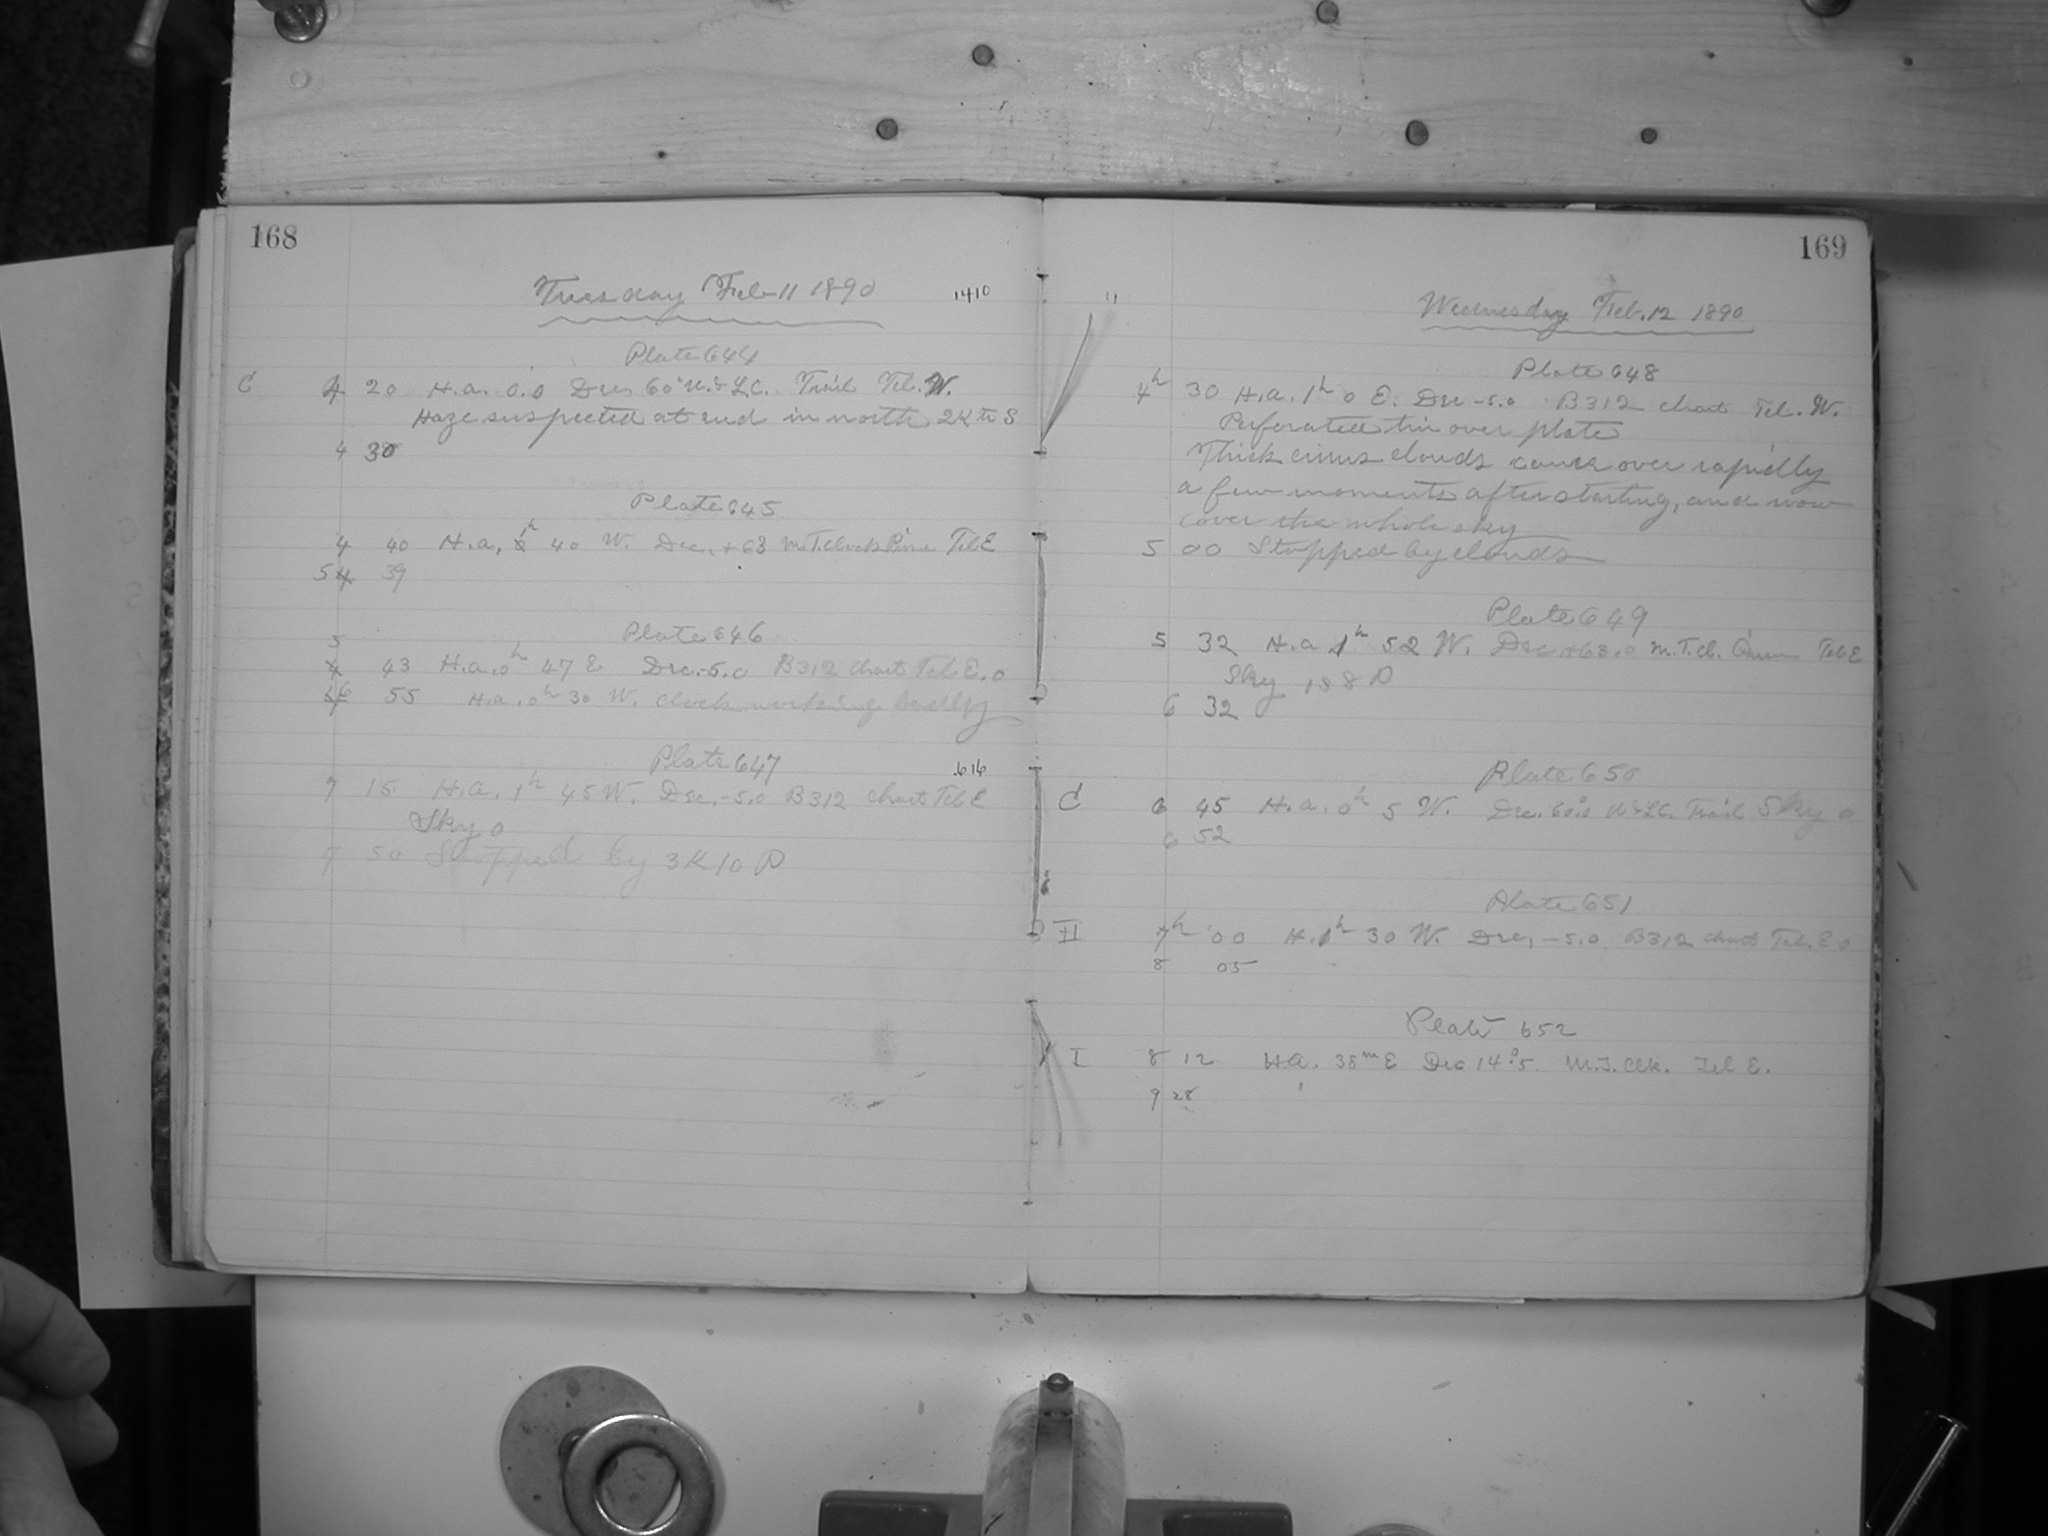 168
Tuesday Feb 11 1890 1410
Plate 644
C 4 20 H.a. 0.0 Dec. 60° U.&L.C. Trail Tel. W.
Haze suspected at end in north 2K to S
4 30
Plate 645
4 40 H.a. 1h 40 W. Dec. +63 M.T. clock Tel E
5 39
Plate 646
5 43 H.a. 0h 47 E Dec. -5.0 B312 chart Tel. E. 0
6 55 H.a. 0h 30 W. clock working badly
Plate 647 616
7 15 H.A. 1h 45 W. Dec. -5.0 B312 chart Tel E
Sky 0
7 50 Stopped by 3K10 P
169
11
Wednesday Feb. 12 1890
Plate 648
4h 30 H.a. 1h 0 E. Dec -5.0 B312 chart Tel. W.
Perforated tin over plate
Thick cirrus clouds came over rapidly
a few moments after starting, and now
cover the whole sky
5 00 Stopped by clouds
Plate 649
5 32 H.a 1h 52 W. Dec. +63.0 M.T. Cl. Tel E
Sky 188 P
6 32
Plate 650
C 6 45 H.a. 0h 5 W. Dec. 60.0 U&LC. Trail Sky 0
6 52
Plate 651
II 7h 00 H. 1h 30 W. Dec, -5.0 B312 chart Tel. E 0
8 05
Plate 652
I 8 12 HA. 38m E Dec 14°.5 M.T. Clk. Tel E.
9 28